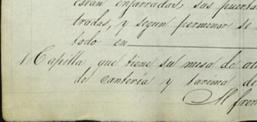 estan enparradas, sus puertas
bradas, y segun pormenor se
todo en
1. Capilla que tiene su mesa de
de cantería y tarema de